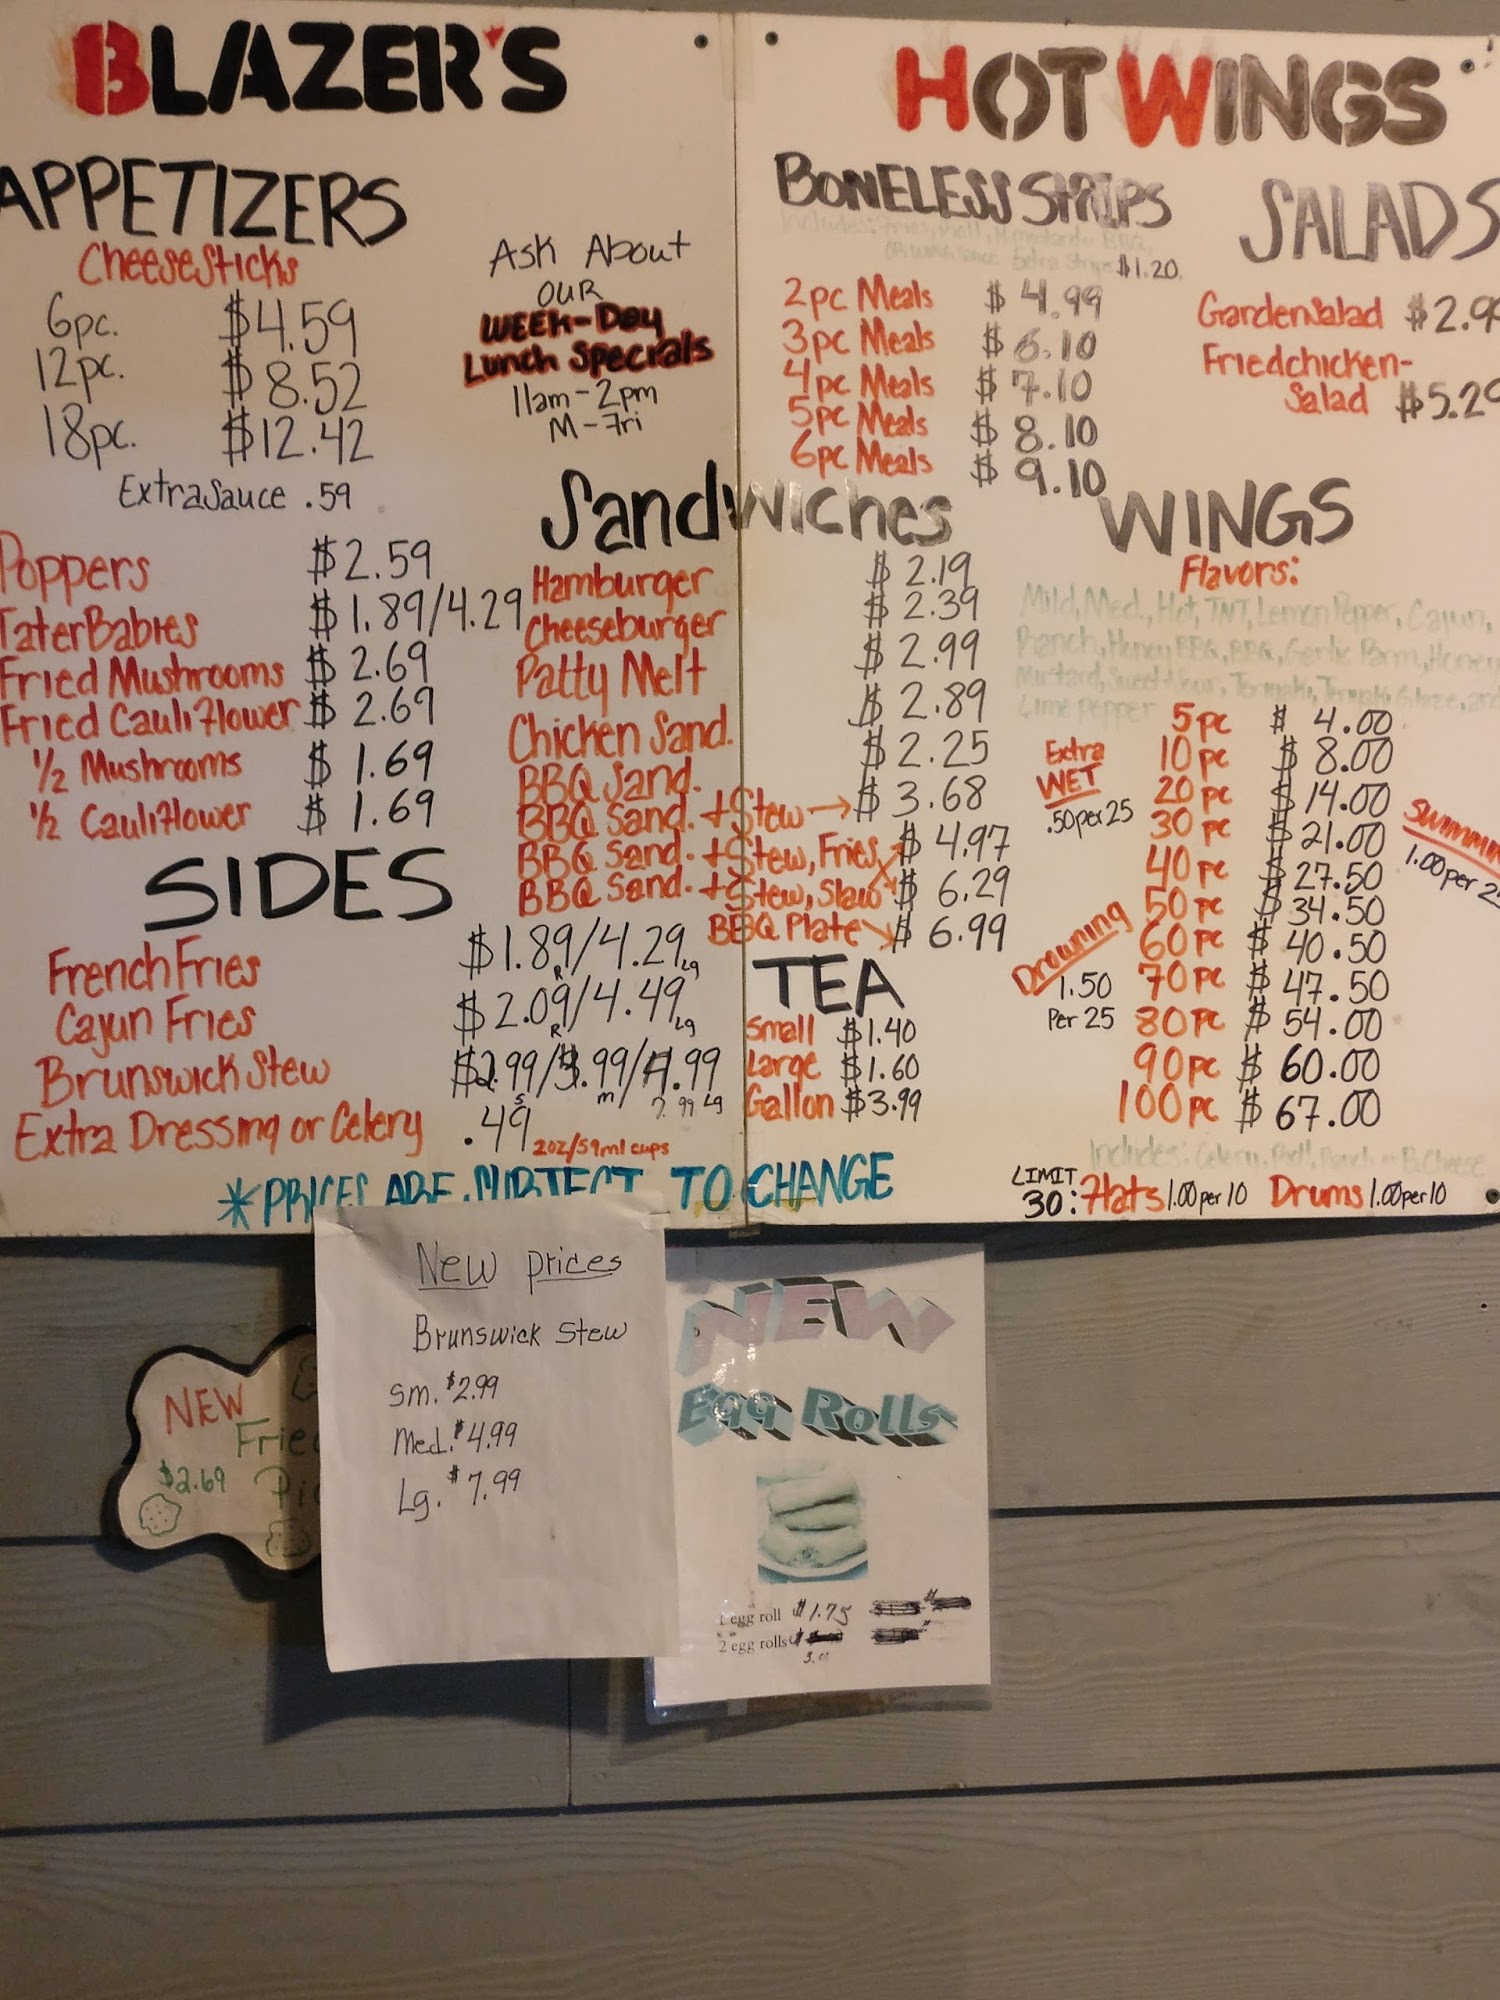 BLAZER'S
HOT WINGS
APPETIZERS
CheeseSticks
6pc. $4.59
12pc. $8.52
18pc. $12.42
Extra Sauce .59
Ask About
our
Week-Day
Lunch Specials
11am-2pm
M-Fri
Poppers $2.59
TaterBabies $1.89/4.29
Fried Mushrooms $2.69
Fried Cauliflower $2.69
1/2 Mushrooms $1.69
1/2 Cauliflower $1.69
SIDES
French Fries $1.89R/4.29Lg
Cajun Fries $2.09R/4.49Lg
Brunswick Stew
7.99 Lg
Extra Dressing or Celery .49 2oz/59ml cups
Sandwiches
Hamburger $2.19
Cheeseburger $2.39
Patty Melt $2.99
Chicken Sand. $2.89
BBQ Sand. $2.25
BBQ Sand. + Stew $3.68
BBQ Sand. + Stew, Fries $4.97
BBQ Sand. + Stew, Slaw $6.29
BBQ Plate $6.99
TEA
Small $1.40
Large $1.60
Gallon $3.99
BONELESS STRIPS
Includes: Fries, Roll,
Extra Strips $1.20
2pc Meals $4.99
3pc Meals $6.10
4pc Meals $7.10
5pc Meals $8.10
6pc Meals $9.10
SALADS
Garden Salad
Fried chicken-
Salad
WINGS
Flavors:
Mild, Med., Hot, TNT, Lemon Pepper, Cajun,
Ranch, Honey BBQ, BBQ, Garlic Parm, Honey
Mustard, Sweet + Sour, Teriyaki,
Lime Pepper
5pc $4.00
10pc $8.00
20pc $14.00
30pc $21.00
40pc $27.50
50pc $34.50
60pc $40.50
70pc $47.50
80pc $54.00
90pc $60.00
100pc $67.00
Extra
WET
.50 per 25
Drowning
1.50
Per 25
1.00 per
Includes: Celery, Roll, Ranch
LIMIT
30: Flats 1.00 per 10 Drums 1.00 per 10
*PRICES ARE SUBJECT TO CHANGE
New prices
Brunswick Stew
Sm. $2.99
Med. $4.99
Lg. $7.99
NEW
$2.69
NEW
Egg Rolls
1 egg roll $1.75
2 egg rolls